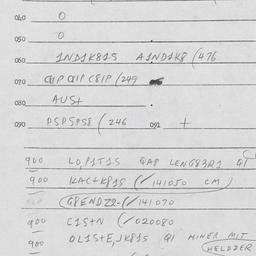 040 0
050 0
060 1ND1K81S A1ND1K8 (476
070 C81P C81P (249
080 AUS+
090 PSPSPS8 (246 091 +
900 LOP1T1S GAP LENG83R1 Q1
900 KAC+K81S (141050 CM)
(G8ENDZ2-(141070
900 C1S+N (020080
900 OL1S+E,JK81S Q1 MINER MIT
(HELDZER